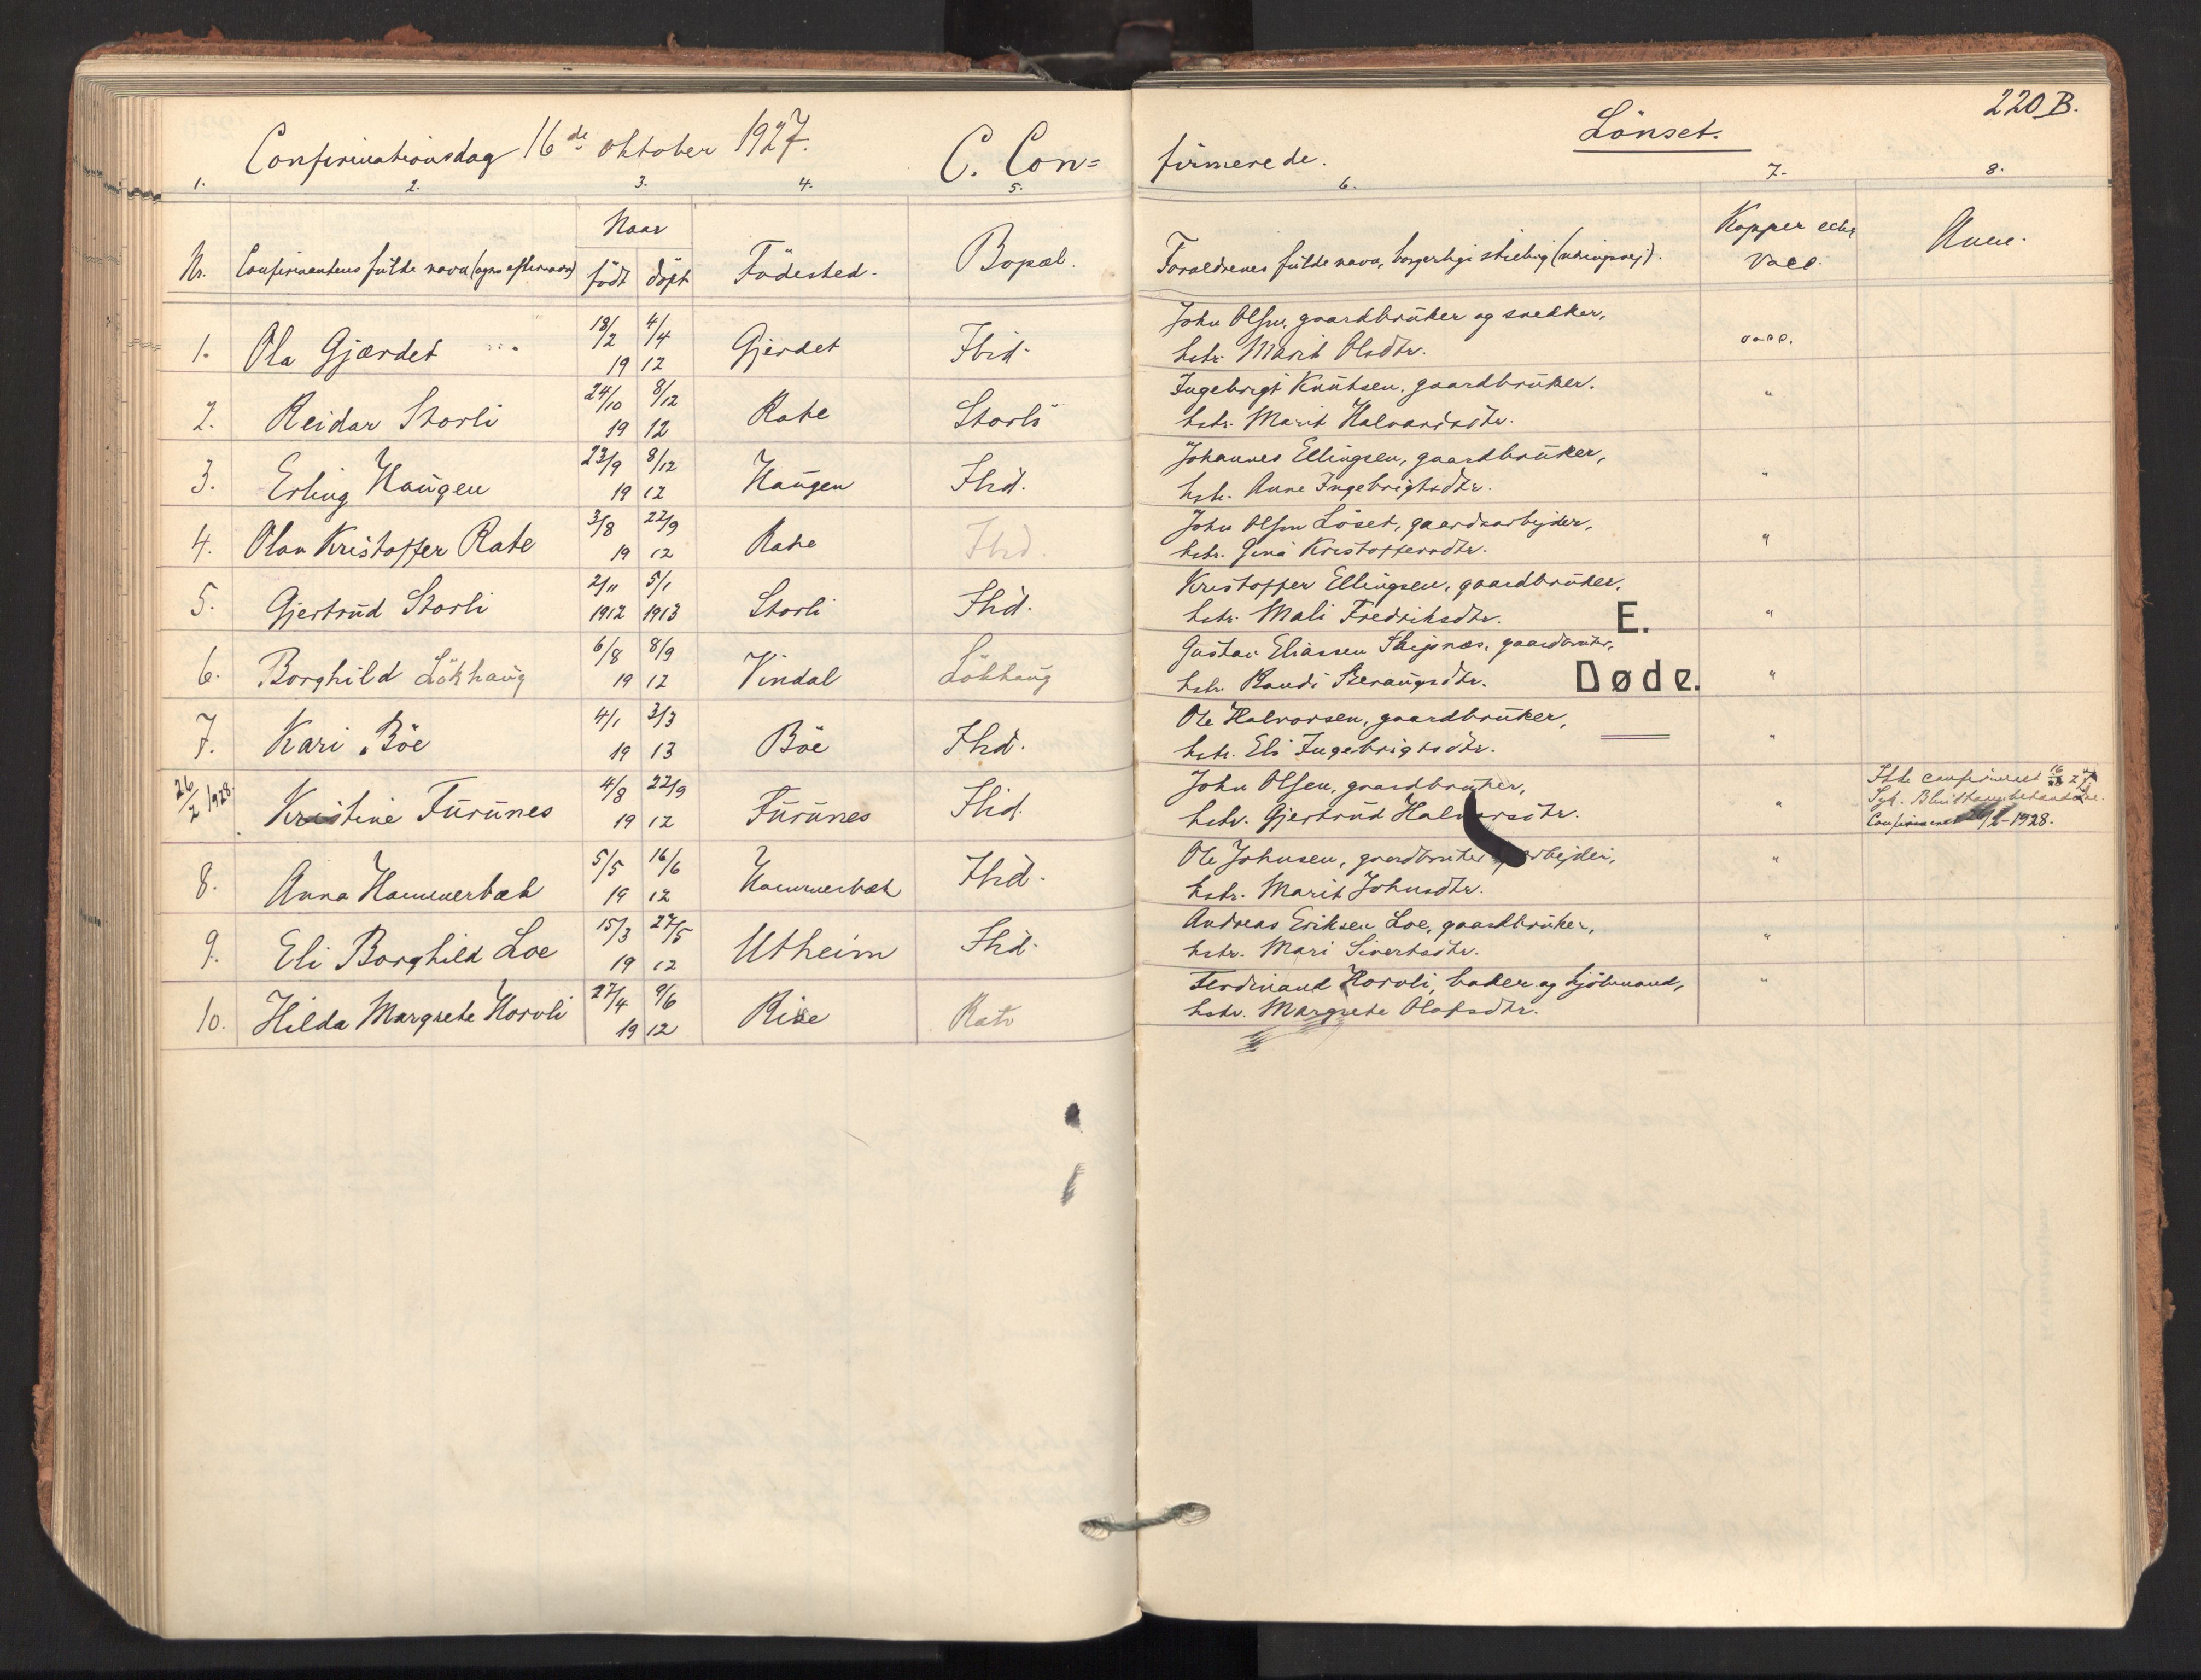 Confirmationsdag 16de oktober 1927.
C. Con=
firmerede.
Lönset.
220 B.
1. 2. 3. 4. 5. 6. 7. 8.
Nr. Confirmantens fulde navn (ogsaa efternavn) Naar født döpt Födested. Bopæl. Forældrenes fulde navn, borgerlige stilling (næringsvej). Kopper eller Vacc. Anm.
1. Ola Gjærdet 18/2 1912 4/4 Gjerdet Ibid. John Olsen, gaardbruker og snekker,
hstr. Marit Olsdtr. vacc.
2. Reidar Storli 24/10 8/12 1912 Rate Storli Ingebrigt Knutsen, gaardbruker.
hstr. Marit Halvardsdtr. "
3. Erling Haugen 23/9 8/12 1912 Haugen Ibid. Johannes Ellingsen, gaardbruker,
hstr. Anne Ingebrigtsdtr. "
4. Olav Kristoffer Rate 3/8 22/9 1912 Rate Ibid. John Olsen Löset, gaardsarbejder,
hstr. Gina Kristoffersdtr. "
5. Gjertrud Storli 2/11 1912 5/1 1913 Storli Ibid. Kristoffer Ellingsen, gaardbruker.
hstr. Mali Fredriksdtr. "
E.
6. Borghild Lökhaug 6/8 8/9 1912 Vindal Lökhaug Gustav Eliassen Skipnæs, gaardbruker,
hstr. Randi "
Døde.
7. Kari Böe 4/1 3/3 1913 Böe Ibid. Ole Halvorsen, gaardbruker,
hstr. Eli Ingebrigtsdtr. "
26/2 1928. Kristine Furunes 4/8 22/9 1912 Furunes Ibid. John Olsen, gaardbruker,
hstr. Gjertrud Halvorsdtr. " Ikke confirmeret 16/10 27
Syk.
Confirmeret 26/2-1928.
8. Anna Hammerbæk 5/5 16/6 1912 Hammerbæk Ibid. Ole Johnsen, gaardbruker arbejder,
hstr. Marit Johnsdtr. "
9. Eli Borghild Loe 15/3 27/5 1912 Utheim Ibid. Andreas Eriksen Loe, gaardbruker,
hstr. Mari Sivertsdtr. "
10. Hilda Margrete Horvli 27/4 9/6 1912 Rise Rate Ferdinand Horvli, baker og kjöbmand,
hstr. Margrete Olafsdtr. "